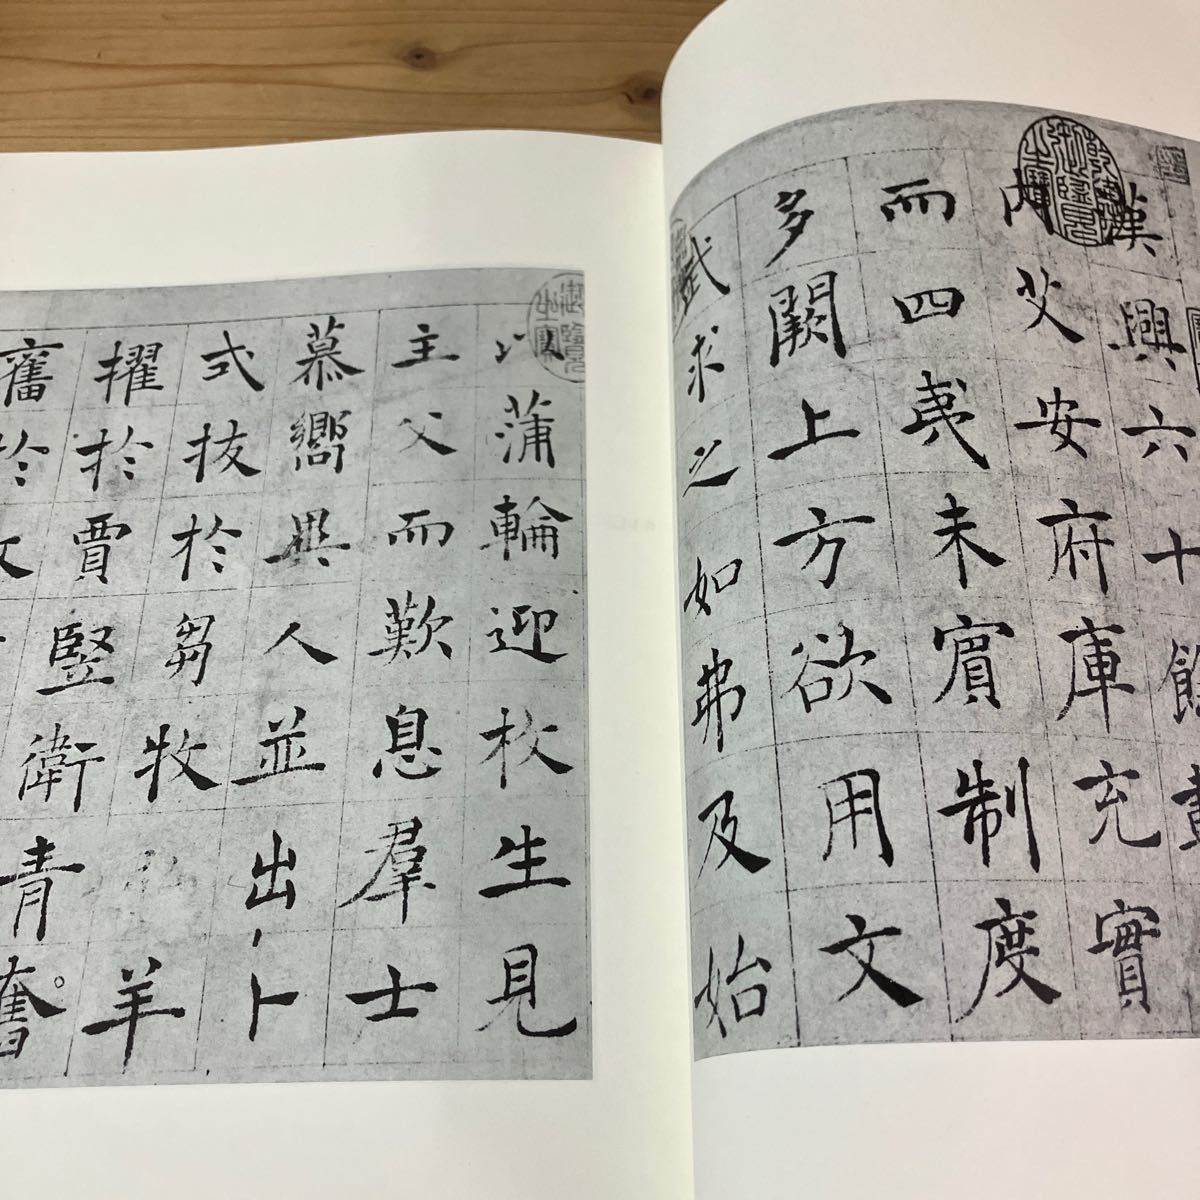 漢興六十餘載
内艾安府庫充實
而四夷未賓制度
多闕上方欲用文
武求之如弗及始
以蒲輪迎枚生見
主父而歎息羣士
慕嚮異人並出卜
式拔於芻牧羊
擢於賈豎衛青
奮於奮